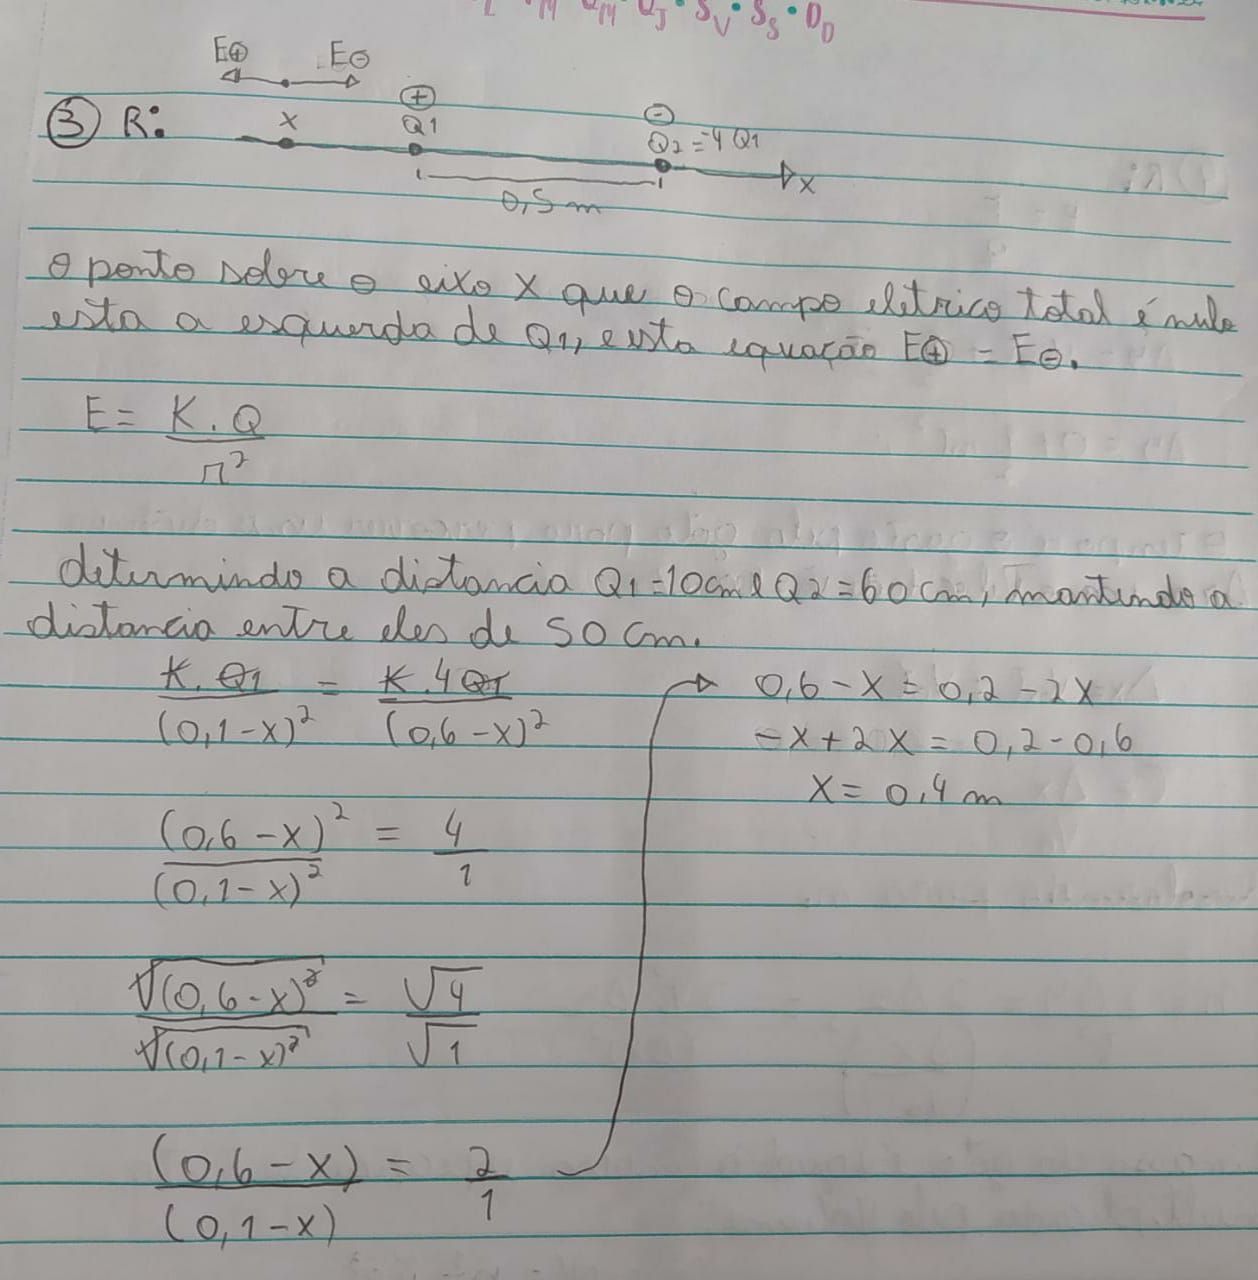 E⊕ E⊖
③ R: x ⊕ Q1 ⊖ Q2 = -4Q1
x
0,5 m
O ponto sobre o eixo x que o campo eletrico total é nulo
esta a esquerda de Q1, esta equação E⊕ = E⊖.
E = K.Q
r²
determindo a distancia Q1=10cm e Q2=60cm, mantendo a
distancia entre eles de 50 cm.
K.Q1 = K.4Q1
(0,1-x)² (0,6-x)²
(0,6-x)² = 4
(0,1-x)² 1
√(0,6-x)² = √4
√(0,1-x)² √1
(0,6-x) = 2
(0,1-x) 1
0,6-x = 0,2-2x
-x+2x = 0,2-0,6
x = 0,4 m